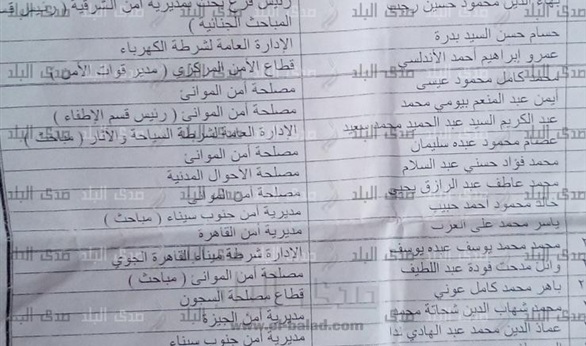 بهاء الدين محمود حسين رجب رئيس فرع بحث بمديرية أمن الشرقية ( رئيس
المباحث الجنائية )
حسام حسن السيد بدرة الإدارة العامة لشرطة الكهرباء
عمرو ابراهيم أحمد الأندلسي قطاع الأمن المركزي ( مدير قوات الأمن )
كامل محمود عيسى مصلحة أمن الموانئ
أيمن عبد المنعم بيومي محمد مصلحة أمن الموانئ ( رئيس قسم الإطفاء )
عبد الكريم السيد عبد الحميد محمد الإدارة العامة لشرطة السياحة والآثار ( مباحث )
عصام محمود عبده سليمان مصلحة أمن الموانئ
محمد فؤاد حسني عبد السلام مصلحة الأحوال المدنية
محمد عاطف عبد الرازق يحيى مصلحة أمن الموانئ
خالد محمود أحمد حبيب مديرية أمن جنوب سيناء ( مباحث )
ياسر محمد على العرب مديرية أمن القاهرة
محمد محمد يوسف عبده يوسف الإدارة شرطة ميناء القاهرة الجوي
وائل مدحت فودة عبد اللطيف مصلحة أمن الموانئ ( مباحث )
باهر محمد كامل عوني قطاع مصلحة السجون
محمد شهاب الدين شحاتة محمد مديرية أمن الجيزة
عماد الدين محمد عبد الهادي ندا مديرية أمن جنوب سيناء
صدى البلد
www.el-balad.com